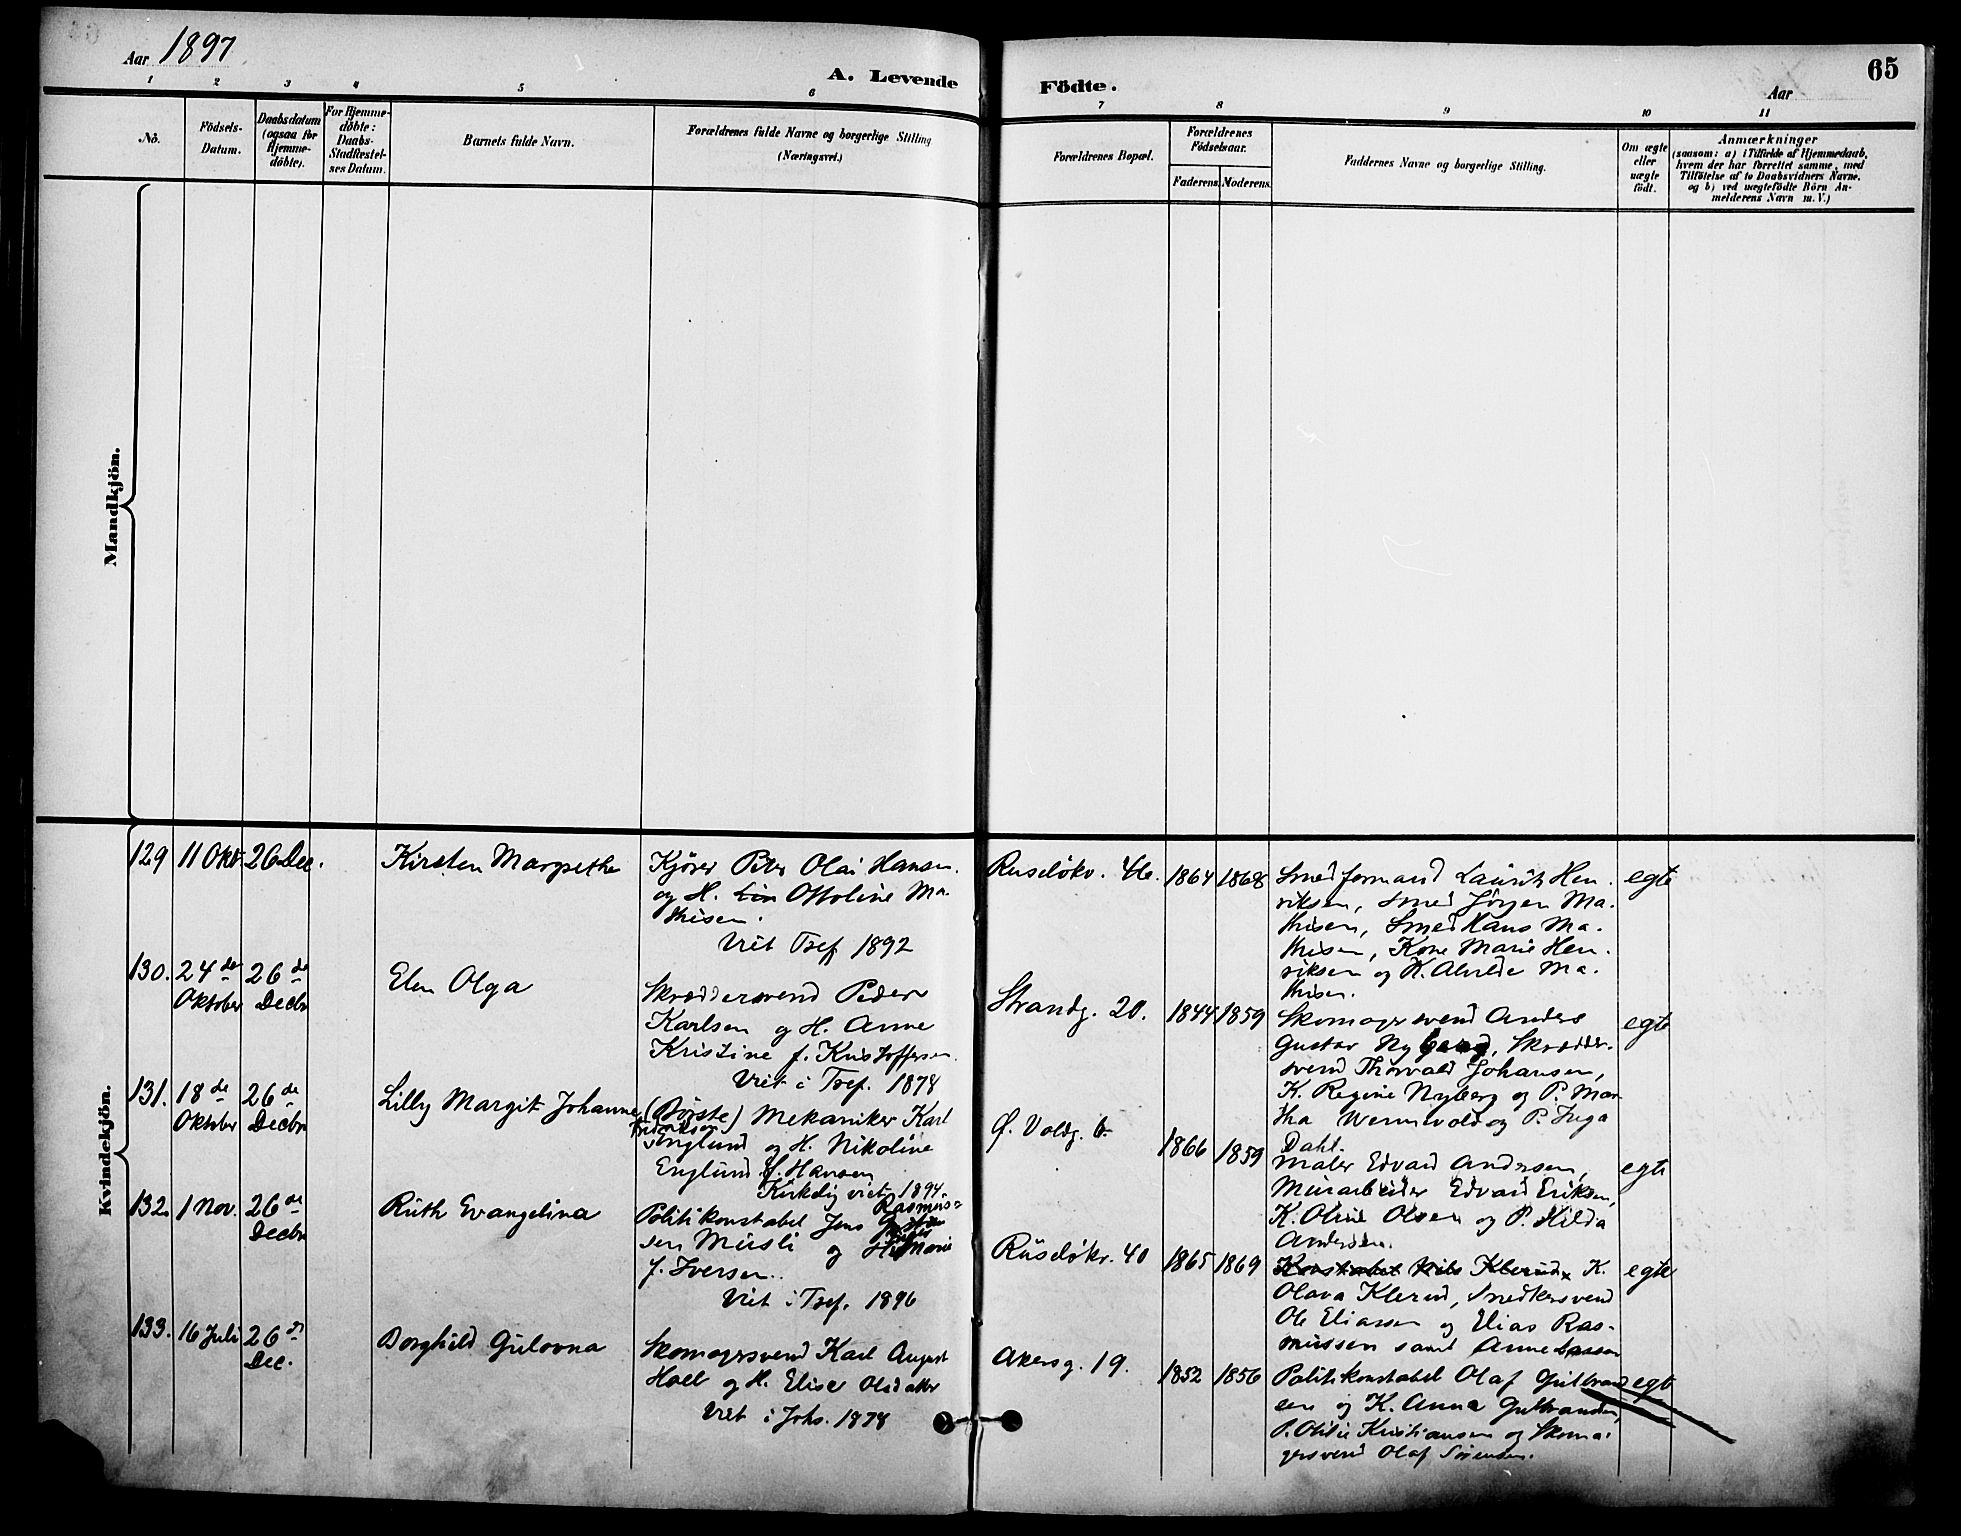 Aar 1897
A. Levende Födte.
65
Aar
1 2 3 4 5 6 7 8 9 10 11
No.
Födsels-
Datum.
Daabsdatum
(ogsaa for
Hjemme-
döbte).
For Hjemme-
döbte:
Daabs-
Stadfæstel-
ses Datum.
Barnets fulde Navn.
Forældrenes fulde Navne og borgerlige Stilling
(Næringsvei.)
Forældrenes Bopæl.
Forældrenes
Födselsaar.
Faderens. Moderens.
Faddernes Navne og borgerlige Stilling.
Om ægte
eller
uægte
födt.
Anmærkninger
(saasom: a) i Tilfælde af Hjemmedaab,
hvem der har forrettet samme, med
Tilföielse af to Daabsvidners Navne,
og b) ved uægtefödte Börn An-
melderens Navn m. V.)
Mandkjön.
Kvindekjön.
129 11 Okt. 26 Dec. Kirsten Margrethe
Kjører Peter Olai Hansen
og H. Ottoline Ma-
thisen.
Viet Tref 1892
Ruseløkv. 46. 1864 1868
Smedformand Laurits Hen-
riksen, Smed Jørgen Ma-
thisen, Smed Hans Ma-
thisen, Kone Marie Hen-
riksen og K. Alvilde Ma-
thisen.
egte
130. 24de 26de
Oktober Decbr
Elen Olga
Skræddersvend Peder
Karlsen og H. Anne
Kristine f. Kristoffersen.
Viet i Tref. 1878
Strandg. 20. 1844 1859
Skomagersvend Anders
Gustav Nyberg, Skrædder-
svend Thorvald Johansen,
K. Regine Nyberg og P. Mar-
tha og P. Inga
Dahl.
egte
131. 18de 26de
Oktober Decbr
Lilly Margit Johanne
(Døvste) Mekaniker Karl
Fredriksen
Englund og H. Nikoline
Englund f. Hansen
Kirkelig viet 1894.
Ø. Voldg. 6. 1866 1859
Maler Edvard Andersen,
Murarbeider Edvard Eriksen,
K. Oline Olsen og P. Hilda
Andersen.
egte
132. 1 Nov. 26de
Decbr
Ruth Evangelina
Politikonstabel Jens Rasmus-
sen Musli og H. Marie
f. Iversen.
Viet i Tref. 1896
Ruseløkv. 40 1865 1869
Konstabel Nils Klerud, K.
Olava Klerud, Snedkersvend
Ole Eliassen og Elias Ras-
mussen samt Anne
egte
133. 16 Juli 26de
Dec.
Borghild Gulovna
Skomagersvend Karl August
Holt og H. Elise Olsdatter
Viet i Johs. 1878
Akersg. 19. 1852 1856
Politikonstabel Olaf Gulbrand-
sen og K. Anna Gulbrandsen,
P. Otilie Kristiansen og Skoma-
gersvend Olaf Sørensen.
egte